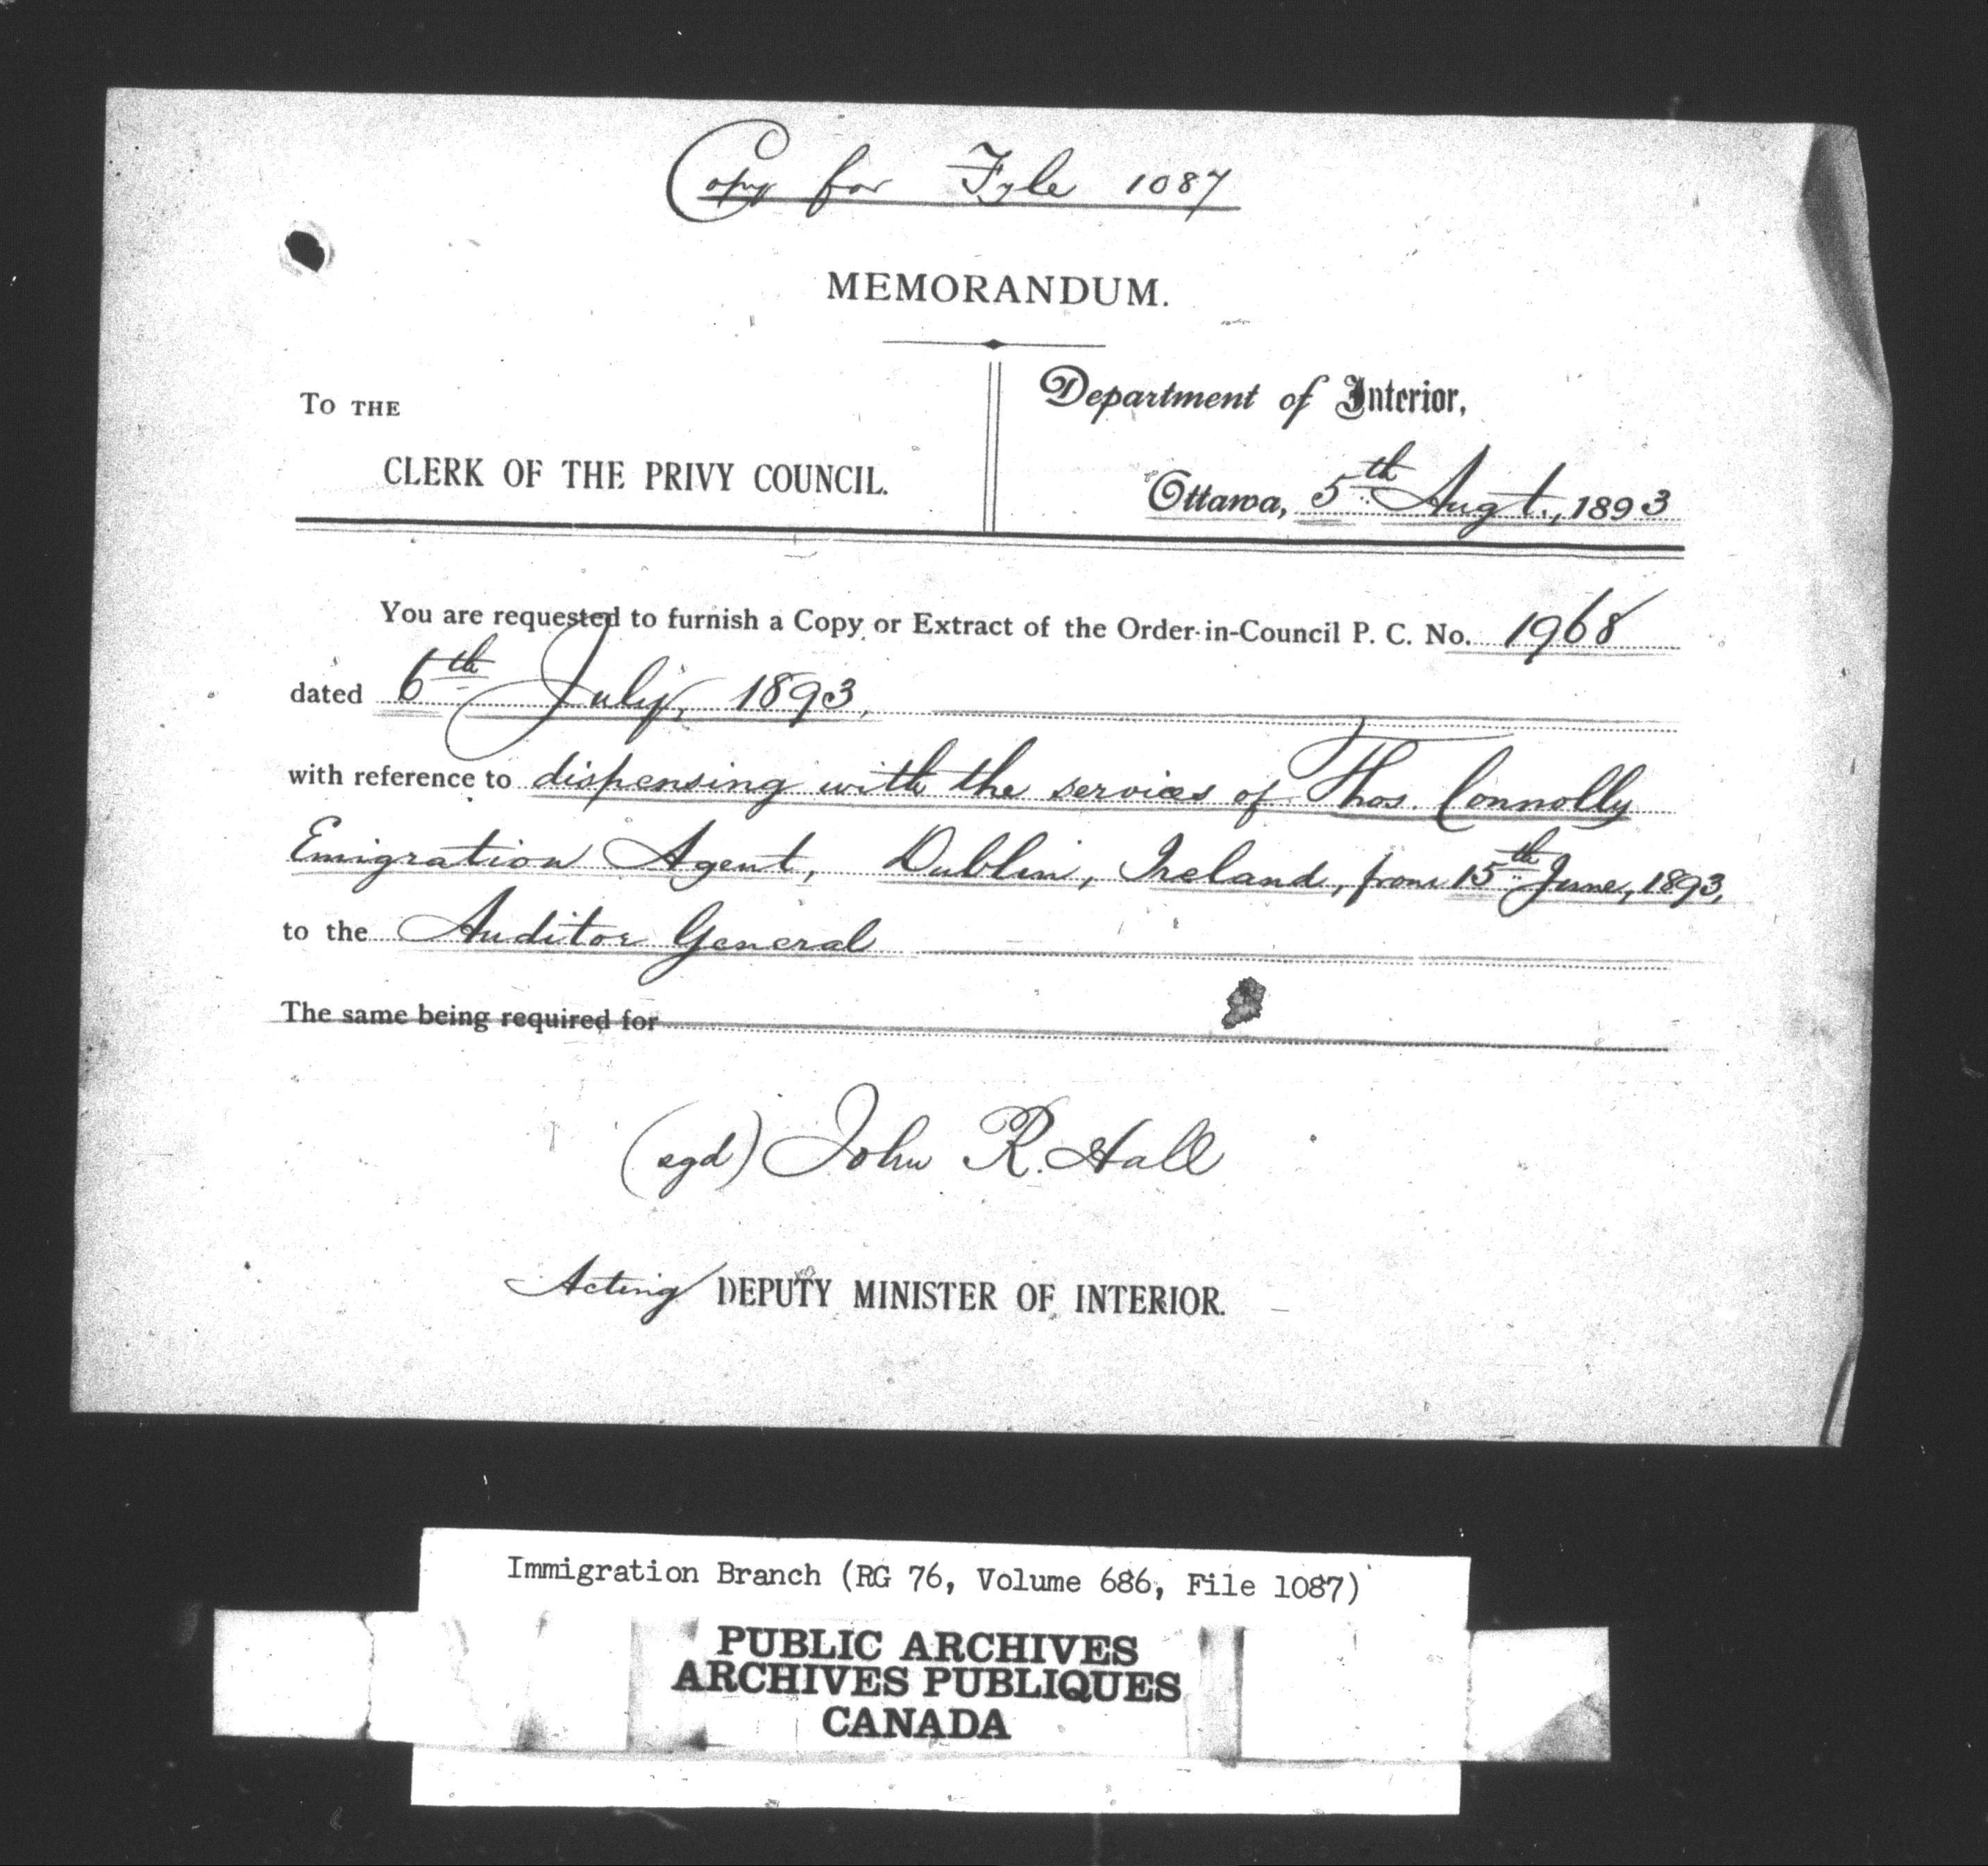 Copy for Fyle 1087
MEMORANDUM.
TO THE
CLERK OF THE PRIVY COUNCIL.
Department of Interior,
Ottawa, 5th Augt., 1893
You are requested to furnish a Copy or Extract of the Order-in-Council P. C. No. 1968
dated 6th July, 1893,
with reference to dispensing with the services of Thos. Connolly
Emigration Agent, Dublin, Ireland, from 15th June, 1893,
to the Auditor General
The same being required for
(sgd) John R. Hall
Acting DEPUTY MINISTER OF INTERIOR.
Immigration Branch (RG 76, Volume 686, File 1087)
PUBLIC ARCHIVES
ARCHIVES PUBLIQUES
CANADA